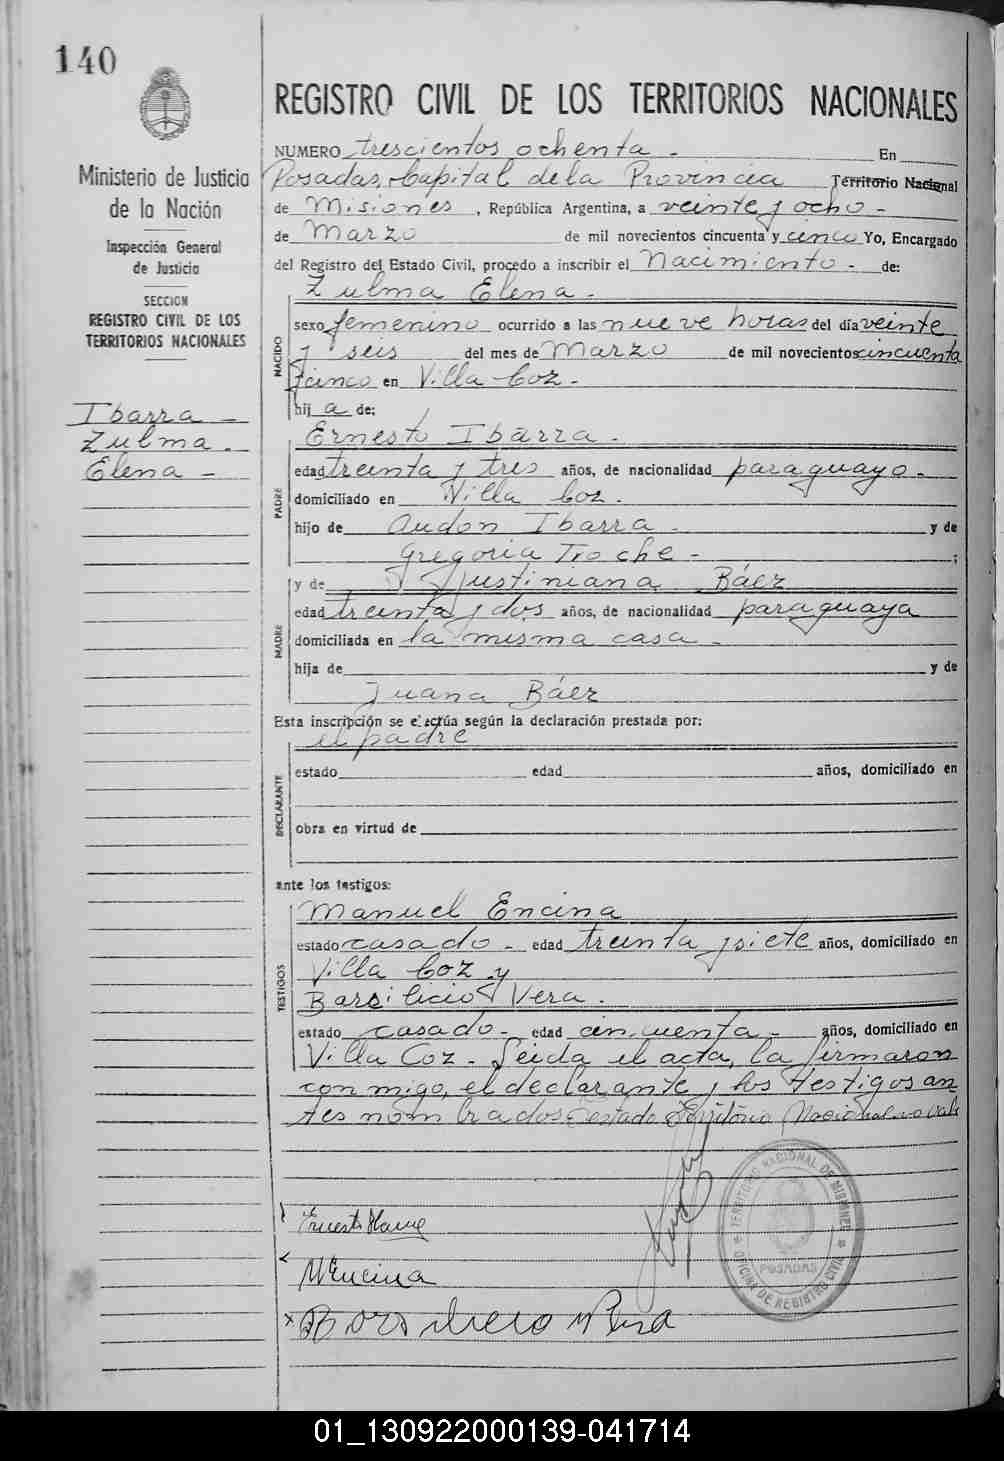 140
Ministerio de Justicia
de la Nación
Inspección General
de Justicia
SECCION
REGISTRO CIVIL DE LOS
TERRITORIOS NACIONALES
Ibarra
Zulma.
Elena
REGISTRO CIVIL DE LOS TERRITORIOS NACIONALES
NUMERO trescientos ochenta - En
Posadas, Capital de la Provincia Territorio Nacional
de Misiones, República Argentina, a veinte y ocho -
de Marzo de mil novecientos cincuenta y cinco Yo, Encargado
del Registro del Estado Civil, procedo a inscribir el Nacimiento - de:
Zulma Elena -
NACIDO
sexo femenino ocurrido a las nueve horas del día veinte
y seis del mes de Marzo de mil novecientos cincuenta
y cinco en Villa Coz -
hij a de:
Ernesto Ibarra -
PADRE
edad treinta y tres años, de nacionalidad paraguayo -
domiciliado en Villa Coz.
hijo de Audon Ibarra - y de
Gregoria Troche - ;
MADRE
y de Justiniana Báez
edad treinta y dos años, de nacionalidad paraguaya
domiciliada en la misma casa -
hija de y de
Juana Báez
Esta inscripción se efectúa según la declaración prestada por:
el padre
DECLARANTE
estado edad años, domiciliado en
obra en virtud de
ante los testigos:
TESTIGOS
Manuel Encina
estado casado - edad treinta y siete años, domiciliado en
Villa Coz y
Vera.
estado casado - edad cincuenta - años, domiciliado en
Villa Coz - Leida el acta, la firmaron
conmigo, el declarante y los testigos an
tes nombrados. Testado Territorio Nacional no vale
MEncina
TERRITORIO NACIONAL DE MISIONES
POSADAS
OFICINA DE REGISTRO CIVIL
01_130922000139-041714